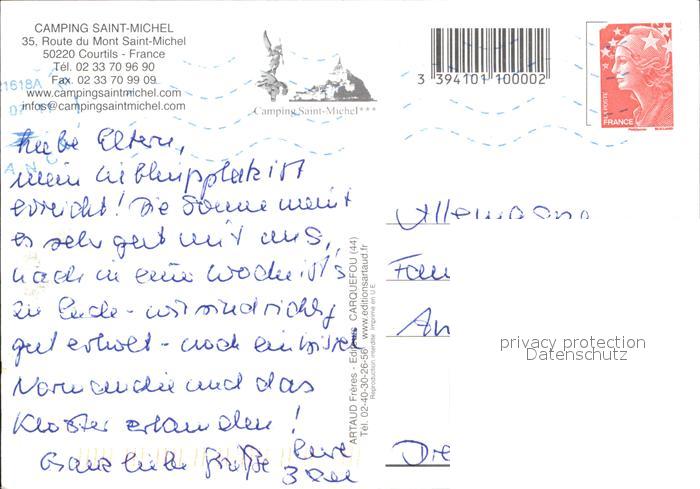 CAMPING SAINT-MICHEL
35, Route du Mont Saint-Michel
50220 Courtils - France
Tél. 02 33 70 96 90
Fax. 02 33 70 99 09
www.campingsaintmichel.com
infos@campingsaintmichel.com
21618A
Camping Saint-Michel***
3 394101 100002
LA POSTE
FRANCE
Liebe Eltern,
mein Lieblingsplatz ist
erreicht! Die Sonne meint
es sehr gut mit uns,
nach in einer Woche ist's
zu Ende - wir sind richtig
gut erholt - noch ein bisschen
Normandie und das
Kloster erkunden!
Ganz liebe Grüße Eure
ARTAUD Frères - Editeurs CARQUEFOU (44)
Tél. 02-40-30-26-56 www.editionsartaud.fr
Reproduction interdite Imprimé en U.E.
Allemagne
Fam
An
Dre
privacy protection
Datenschutz